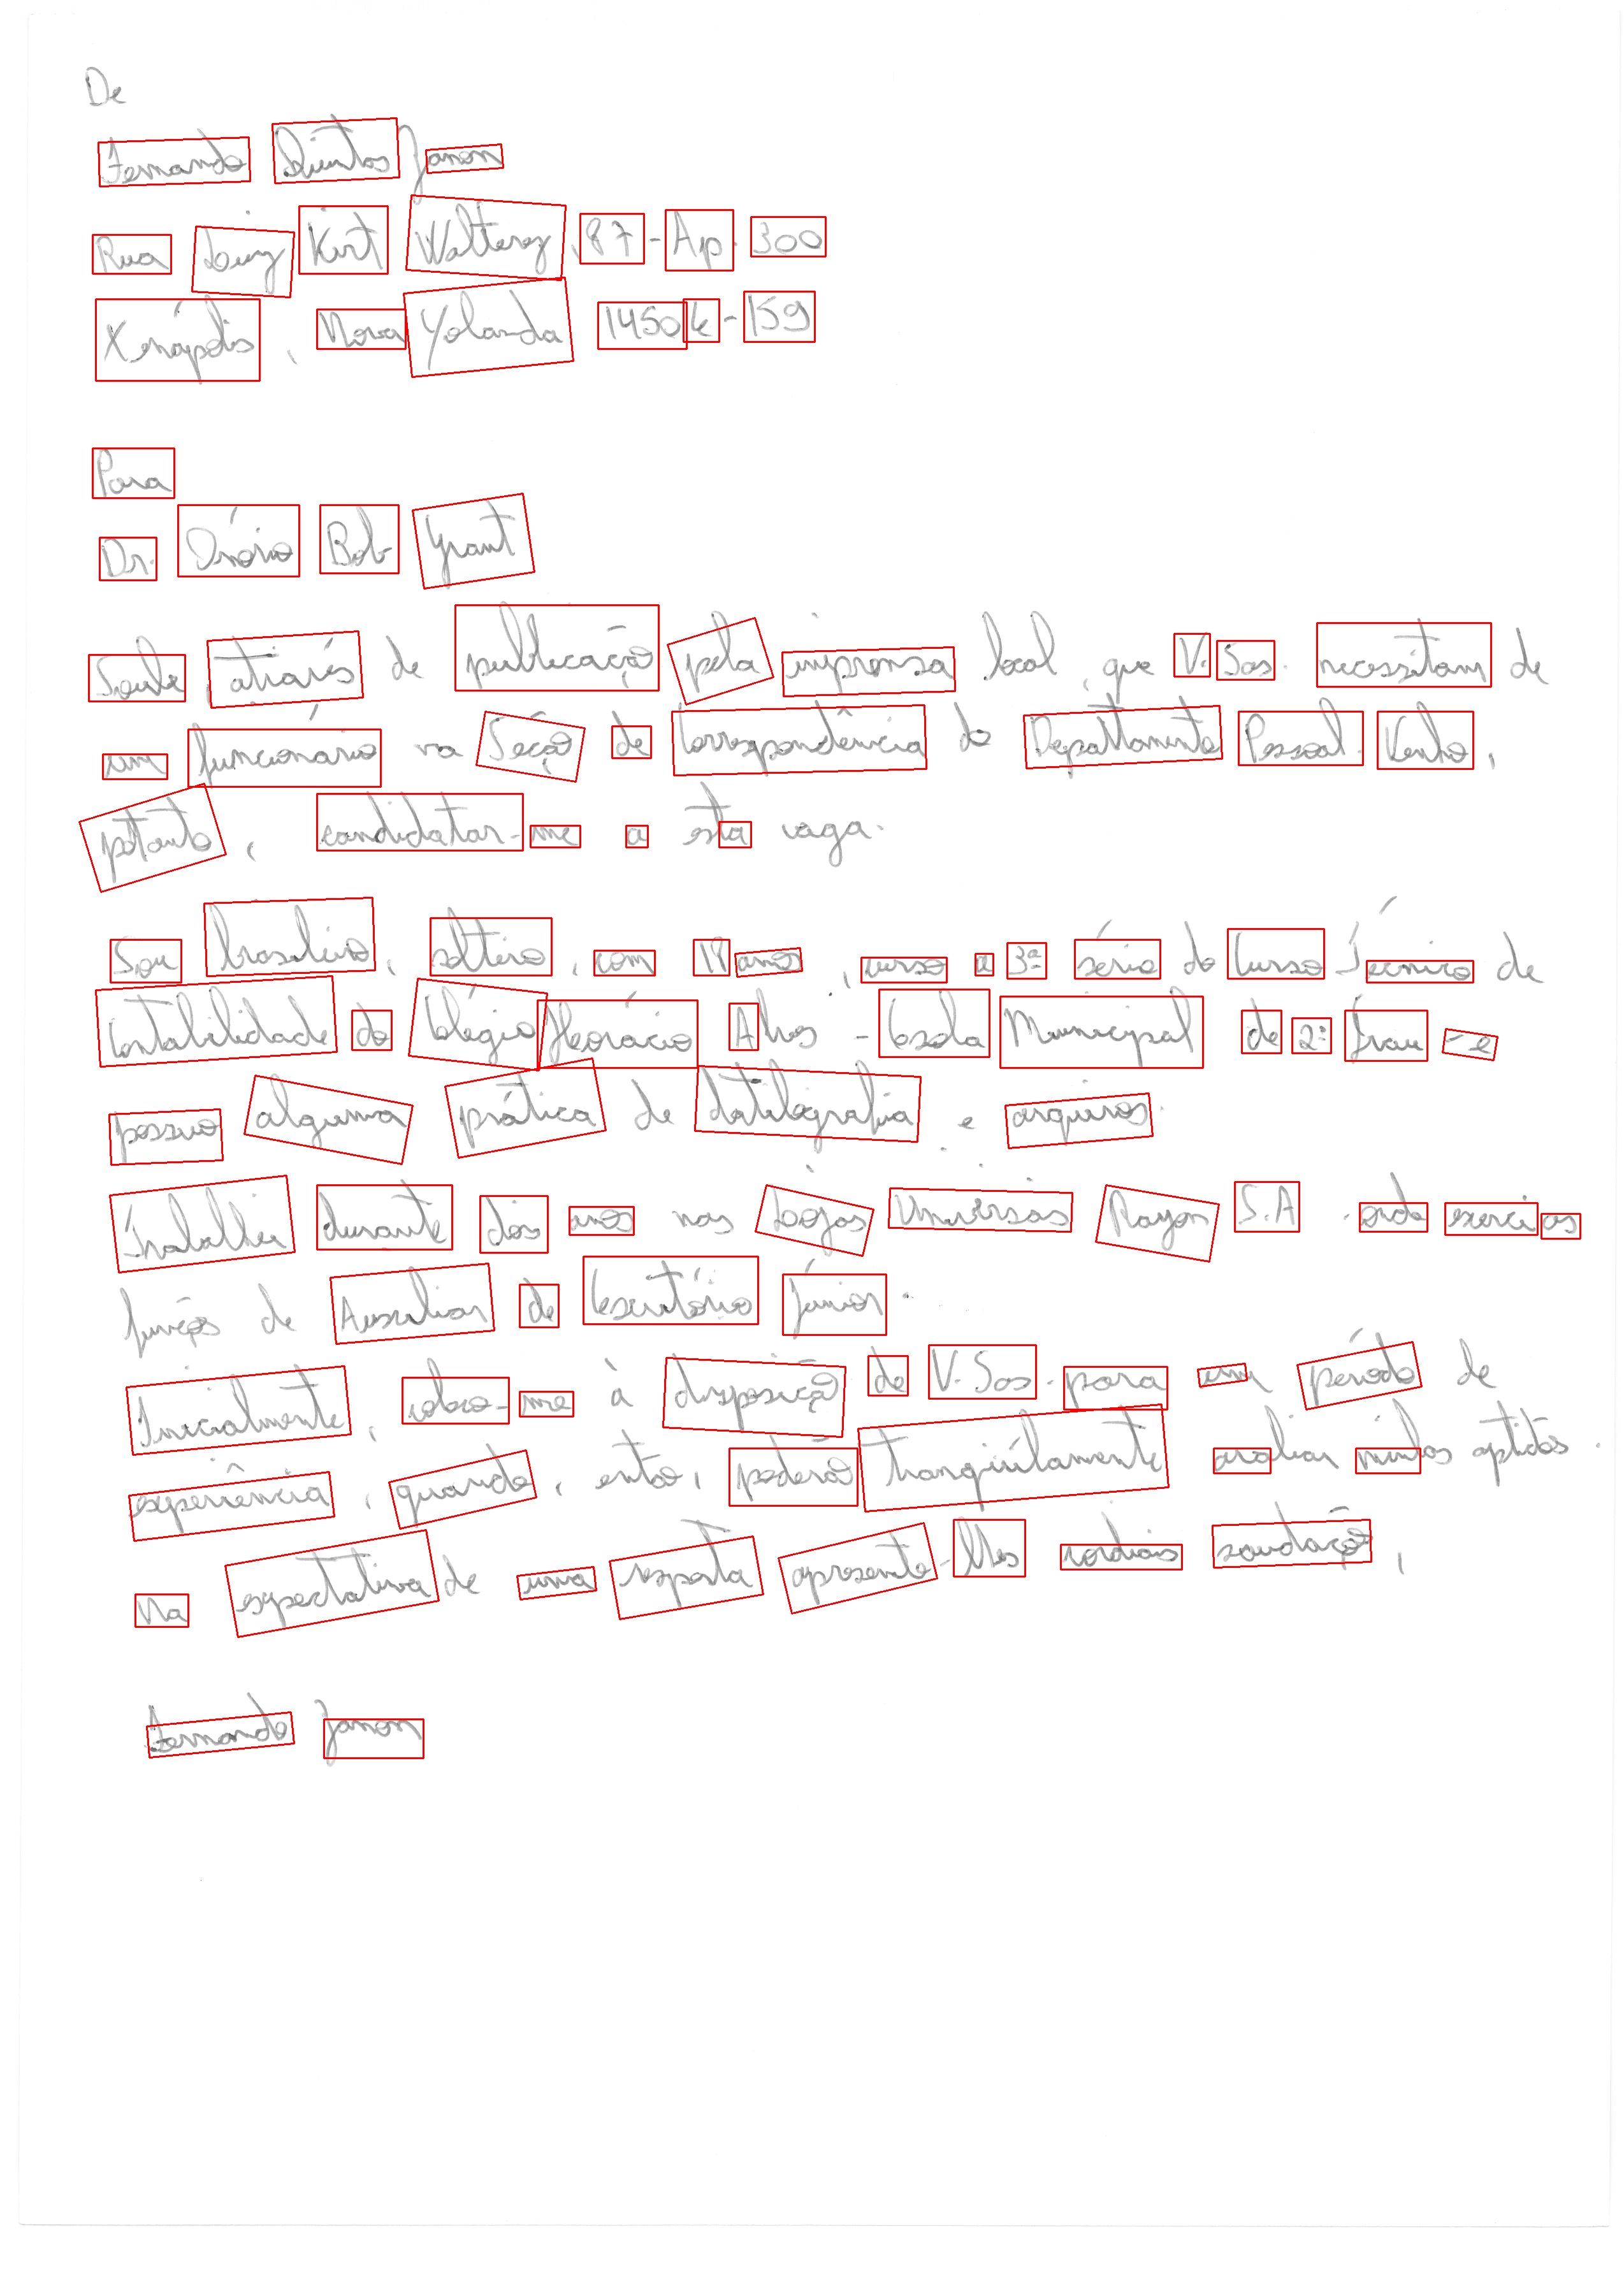 De
Fernando Quintas Janon
Rua Luiz Kirt Walterez, 87 - Ap. 300
Xenápolis, Nova Yolanda 14506-159
Para
Dr. Onório Bob Grant
Soube, através de publicação pela imprensa local, que V. Sas. necessitam de
um funcionário na Seção de Correspondência do Departtamento Pessoal. Venho,
pottanto, candidatar-me a esta vaga.
Sou brasileiro, solteiro, com 18 anos, curso a 3ª série do Curso Técnico de
Contabilidade do Colégio Horácio Alves - Escola Municipal de 2º Grau - e
possuo alguma prática de datilografia e arquivos.
Trabalhei durante dois anos nas Lojas Universais Rayon S.A. onde exerci as
funções de Auxiliar de Escritório Júnior.
Inicialmente, coloco-me à disposição de V. Sas. para um período de
experiência, quando, então, poderão tranqüilamente avaliar minhas aptidões.
Na expectativa de uma resposta apresento-lhes cordiais saudações,
Fernando Janon